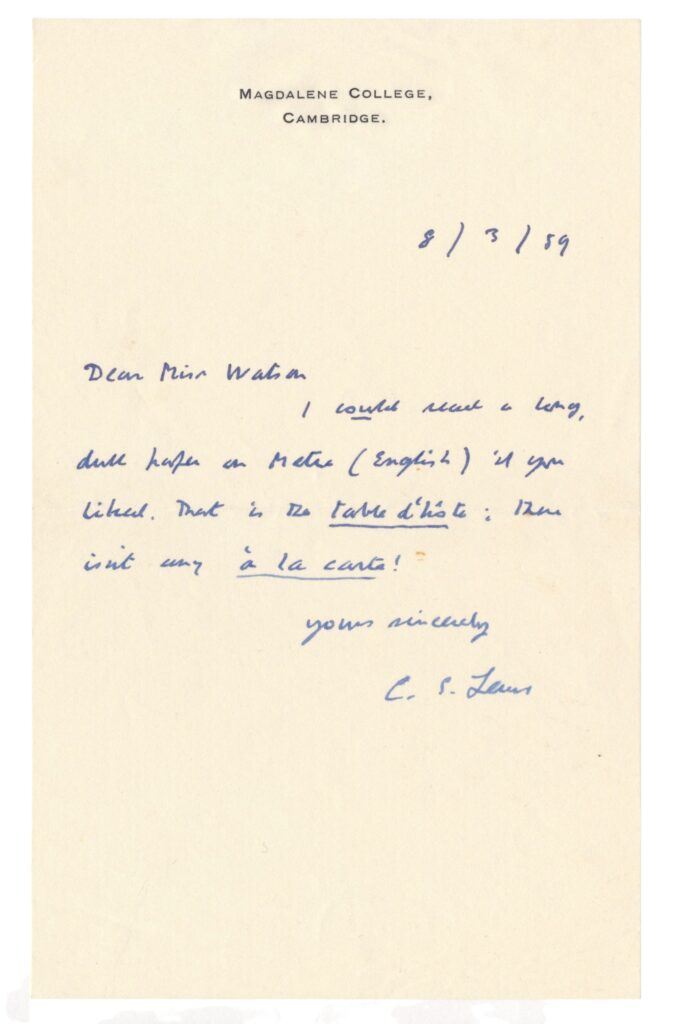 MAGDALENE COLLEGE,
CAMBRIDGE.
8 / 3 / 59
Dear Miss Watson
I could read a long,
dull paper on Metre (English) if you
liked. That is the table d'hôte; there
isn't any à la carte!
yours sincerely
C. S. Lewis